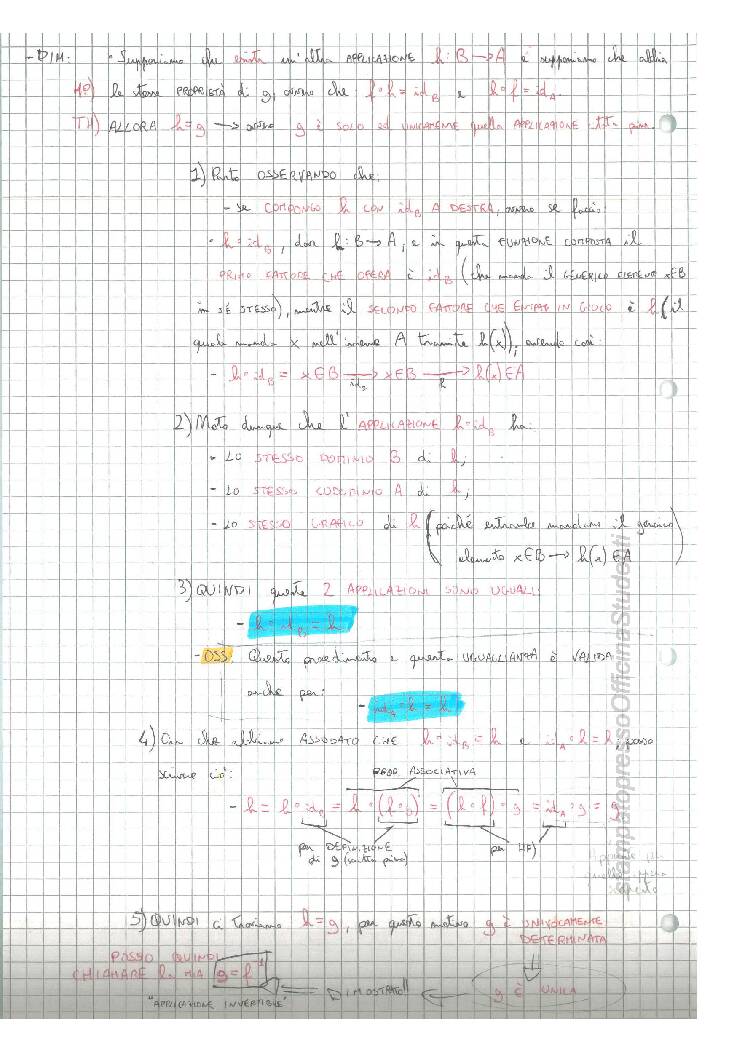 - DIM: • Supponiamo che esista un'altra APPLICAZIONE h: B → A e supponiamo che abbia
HP) le stesse PROPRIETÀ di g, ovvero che: f∘h = id_B e h∘f = id_A.
TH) ALLORA h=g → ovvero g è SOLO ed UNICAMENTE quella APPLICAZIONE
1) Parto OSSERVANDO che:
- se COMPONGO h CON id_B A DESTRA, ovvero se faccio:
- h∘id_B, dove h: B → A, e in questa FUNZIONE COMPOSTA il
PRIMO FATTORE CHE OPERA è id_B (che manda il GENERICO ELEMENTO x∈B
in SÉ STESSO), mentre il SECONDO FATTORE CHE ENTRA IN GIOCO è h (il
quale manda x nell'insieme A tramite h(x)), avendo così:
- h∘id_B = x∈B →id_B x∈B →h h(x)∈A
2) Noto dunque che l'APPLICAZIONE h∘id_B ha:
- LO STESSO DOMINIO B di h;
- LO STESSO CODOMINIO A di h;
- LO STESSO GRAFICO di h (poiché entrambe mandano il generico
elemento x∈B → h(x)∈A)
3) QUINDI queste 2 APPLICAZIONI SONO UGUALI:
- h∘id_B = h
- OSS: Questo procedimento e questa UGUAGLIANZA è VALIDA
anche per:
- id_A∘h = h
4) Ora che abbiamo ASSODATO CHE h∘id_B = h e id_A∘h = h, posso
scrivere ciò:
PROP. ASSOCIATIVA
- h = h∘id_B = h∘(f∘g) = (h∘f)∘g = id_A∘g = g
per DEFINIZIONE
di g (scritta prima)
per HP)
5) QUINDI ci troviamo h=g, per questo motivo g è UNIVOCAMENTE
DETERMINATA
POSSO QUINDI
CHIAMARE la mia g=f⁻¹
"APPLICAZIONE INVERTIBILE"
DIMOSTRATO!!
g è UNICA
stampatopressoOfficinaStudenti